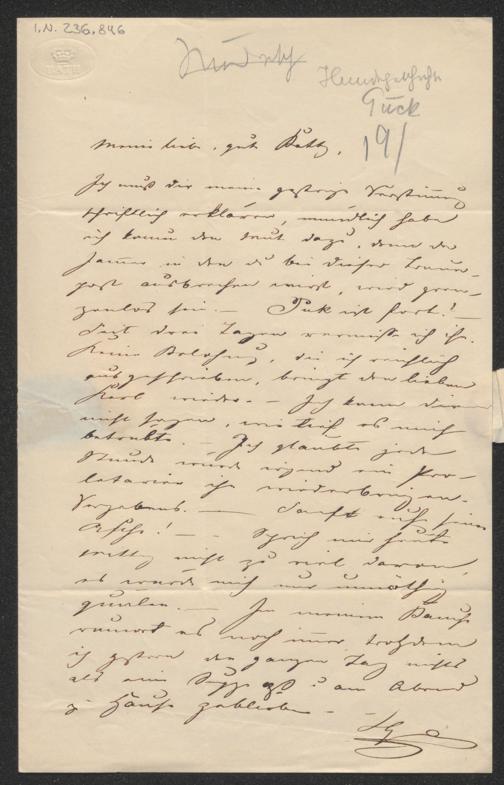 I.N. 236.846
KATH
19/
Meine liebe, gute Kathy,
Ich muß dir meine gestrige Verstimmung
schriftlich erklären, mündlich habe
ich kaum den Mut dazu, denn der
Jammer in den du bei dieser Trauer-
post ausbrechen wirst, wird gren-
zenlos sein. — Tuk ist fort! —
Seit drei Tagen vermisse ich ihn.
Keine Belohnung, die ich reichlich
ausgeschrieben, bringt den lieben
Kerl wieder. — Ich kann dir
nicht sagen, wie tief es mich
betrübte. — Ich glaubte jede
Stunde würde irgend ein Pro-
letarier ihn wiederbringen.
Vergebens. — Sanft ruhe seine
Asche! — Sprich mir heute
nicht zu viel davon,
es würde mich nur unnöthig
quälen. — In meinem Bauche
rumort es noch immer trotzdem
ich gestern den ganzen Tag nichts
als eine Suppe aß u. am Abend
zu Hause geblieben —